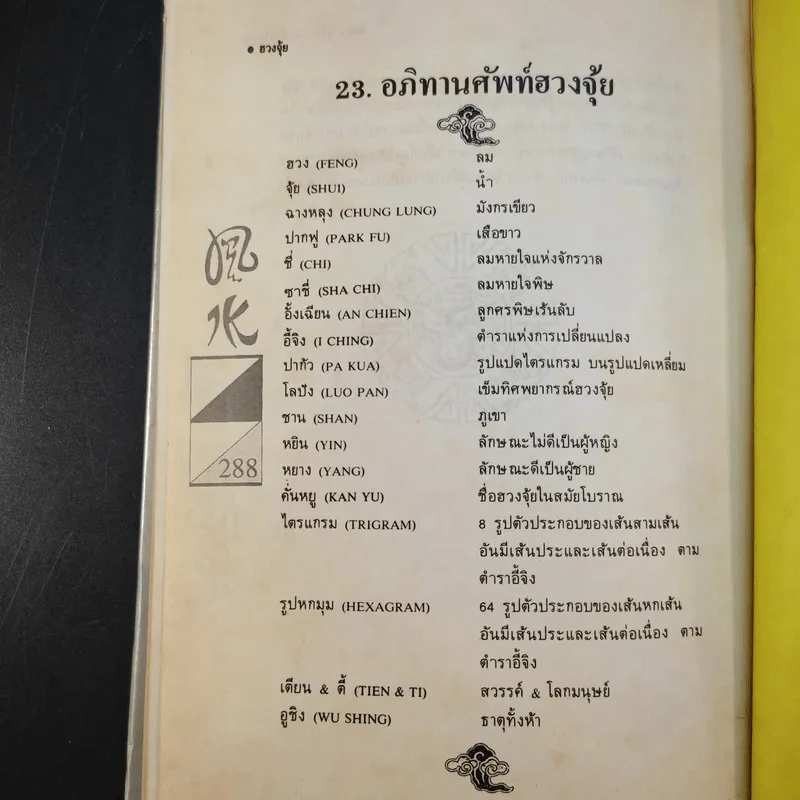 ๑ ฮวงจุ้ย
23. อภิทานศัพท์ฮวงจุ้ย
ฮวง (FENG) ลม
จุ้ย (SHUI) น้ำ
ฉางหลุง (CHUNG LUNG) มังกรเขียว
ปากฟู (PARK FU) เสือขาว
ชี่ (CHI) ลมหายใจแห่งจักรวาล
ซาชี่ (SHA CHI) ลมหายใจพิษ
อั้งเฉียน (AN CHIEN) ลูกศรพิษเร้นลับ
อี้จิง (I CHING) ตำราแห่งการเปลี่ยนแปลง
ปากัว (PA KUA) รูปแปดไตรแกรม บนรูปแปดเหลี่ยม
โลปัง (LUO PAN) เข็มทิศพยากรณ์ฮวงจุ้ย
ชาน (SHAN) ภูเขา
หยิน (YIN) ลักษณะไม่ดีเป็นผู้หญิง
หยาง (YANG) ลักษณะดีเป็นผู้ชาย
คั่นหยู (KAN YU) ชื่อฮวงจุ้ยในสมัยโบราณ
ไตรแกรม (TRIGRAM) 8 รูปตัวประกอบของเส้นสามเส้น
อันมีเส้นประและเส้นต่อเนื่อง ตาม
ตำราอี้จิง
รูปหกมุม (HEXAGRAM) 64 รูปตัวประกอบของเส้นหกเส้น
อันมีเส้นประและเส้นต่อเนื่อง ตาม
ตำราอี้จิง
เตียน & ตี้ (TIEN & TI) สวรรค์ & โลกมนุษย์
อูชิง (WU SHING) ธาตุทั้งห้า
風
水
288